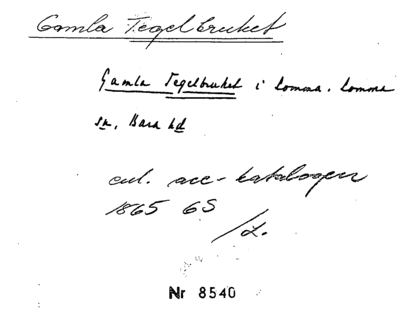 Gamla Tegelbruket
Gamla Tegelbruket i Lomma. Lomma
sn, Bara hd
enl. acc-katalogen
1865 6S
/L.
Nr 8540